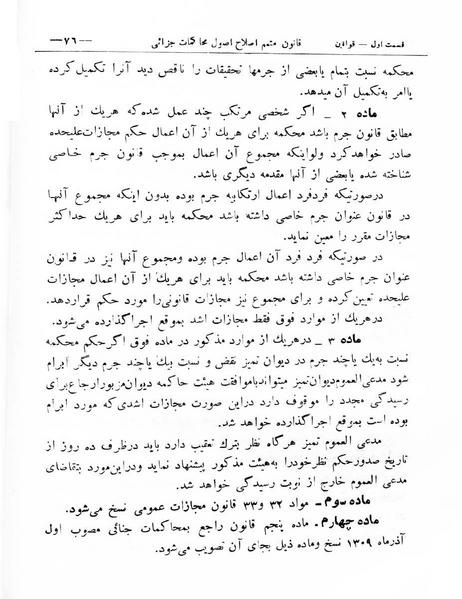 قسمت اول — قوانین قانون متمم اصلاح اصول محاکمات جزائی —٧٦—
محکمه نسبت بتمام یابعضی از جرمها تحقیقات را ناقص دید آنرا تکمیل کرده
یاامر به‌تکمیل آن میدهد.
ماده ٢ _ اگر شخصی مرتکب چند عمل شده‌که هریك از آنها
مطابق قانون جرم باشد محکمه برای هریك از آن اعمال حکم مجازات‌علیحده
صادر خواهدکرد ولواینکه مجموع آن اعمال بموجب قانون جرم خاصی
شناخته شده یابعضی از آنها مقدمه دیگری باشد.
درصورتیکه فردفرد اعمال ارتکابیه جرم بوده بدون اینکه مجموع آنها
در قانون عنوان جرم خاصی داشته باشد محکمه باید برای هریك حداکثر
مجازات مقرر را معین نماید.
در صورتیکه فرد فرد آن اعمال جرم بوده ومجموع آنها نیز در قانون
عنوان جرم خاصی داشته باشد محکمه باید برای هریك از آن اعمال مجازات
علیحده تعیین‌کرده و برای مجموع نیز مجازات قانونی‌را مورد حکم قراردهد.
درهریك از موارد فوق فقط مجازات اشد بموقع اجراگذارده می‌شود.
ماده ٣ _ درهریك از موارد مذکور در ماده فوق اگرحکم محکمه
نسبت به‌یك یاچند جرم در دیوان تمیز نقض و نسبت بیك یاچند جرم دیگر ابرام
شود مدعی‌العموم‌دیوان‌تمیز میتواندباموافقت هیئت حاکمه دیوان‌مزبورارجاع‌برای
رسیدگی مجدد را موقوف دارد دراین صورت مجازات اشدی‌که مورد ابرام
بوده است بموقع اجراگذارده خواهد شد.
مدعی العموم تمیز هرگاه نظر بترك تعقیب دارد باید درظرف ده روز از
تاریخ صدورحکم نظرخودرا به‌هیئت مذکور پیشنهاد نماید ودراین‌مورد بتقاضای
مدعی العموم خارج از نوبت رسیدگی خواهد شد.
ماده سوم_ مواد ٣٢ و٣٣ قانون مجازات عمومی نسخ می‌شود.
ماده چهارم_ ماده پنجم قانون راجع بمحاکمات جنائی مصوب اول
آذرماه ١٣٠٩ نسخ وماده ذیل بجای آن تصویب می‌شود.